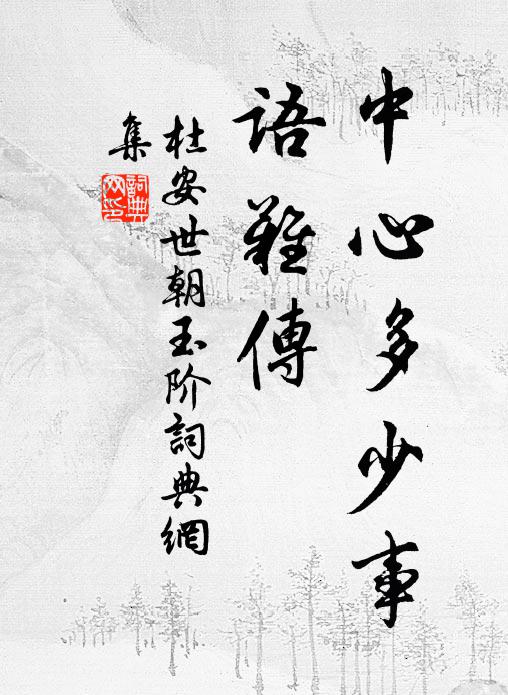 中心多少事
語難傳
杜安世朝玉阶詞典網
集
詞典
网印